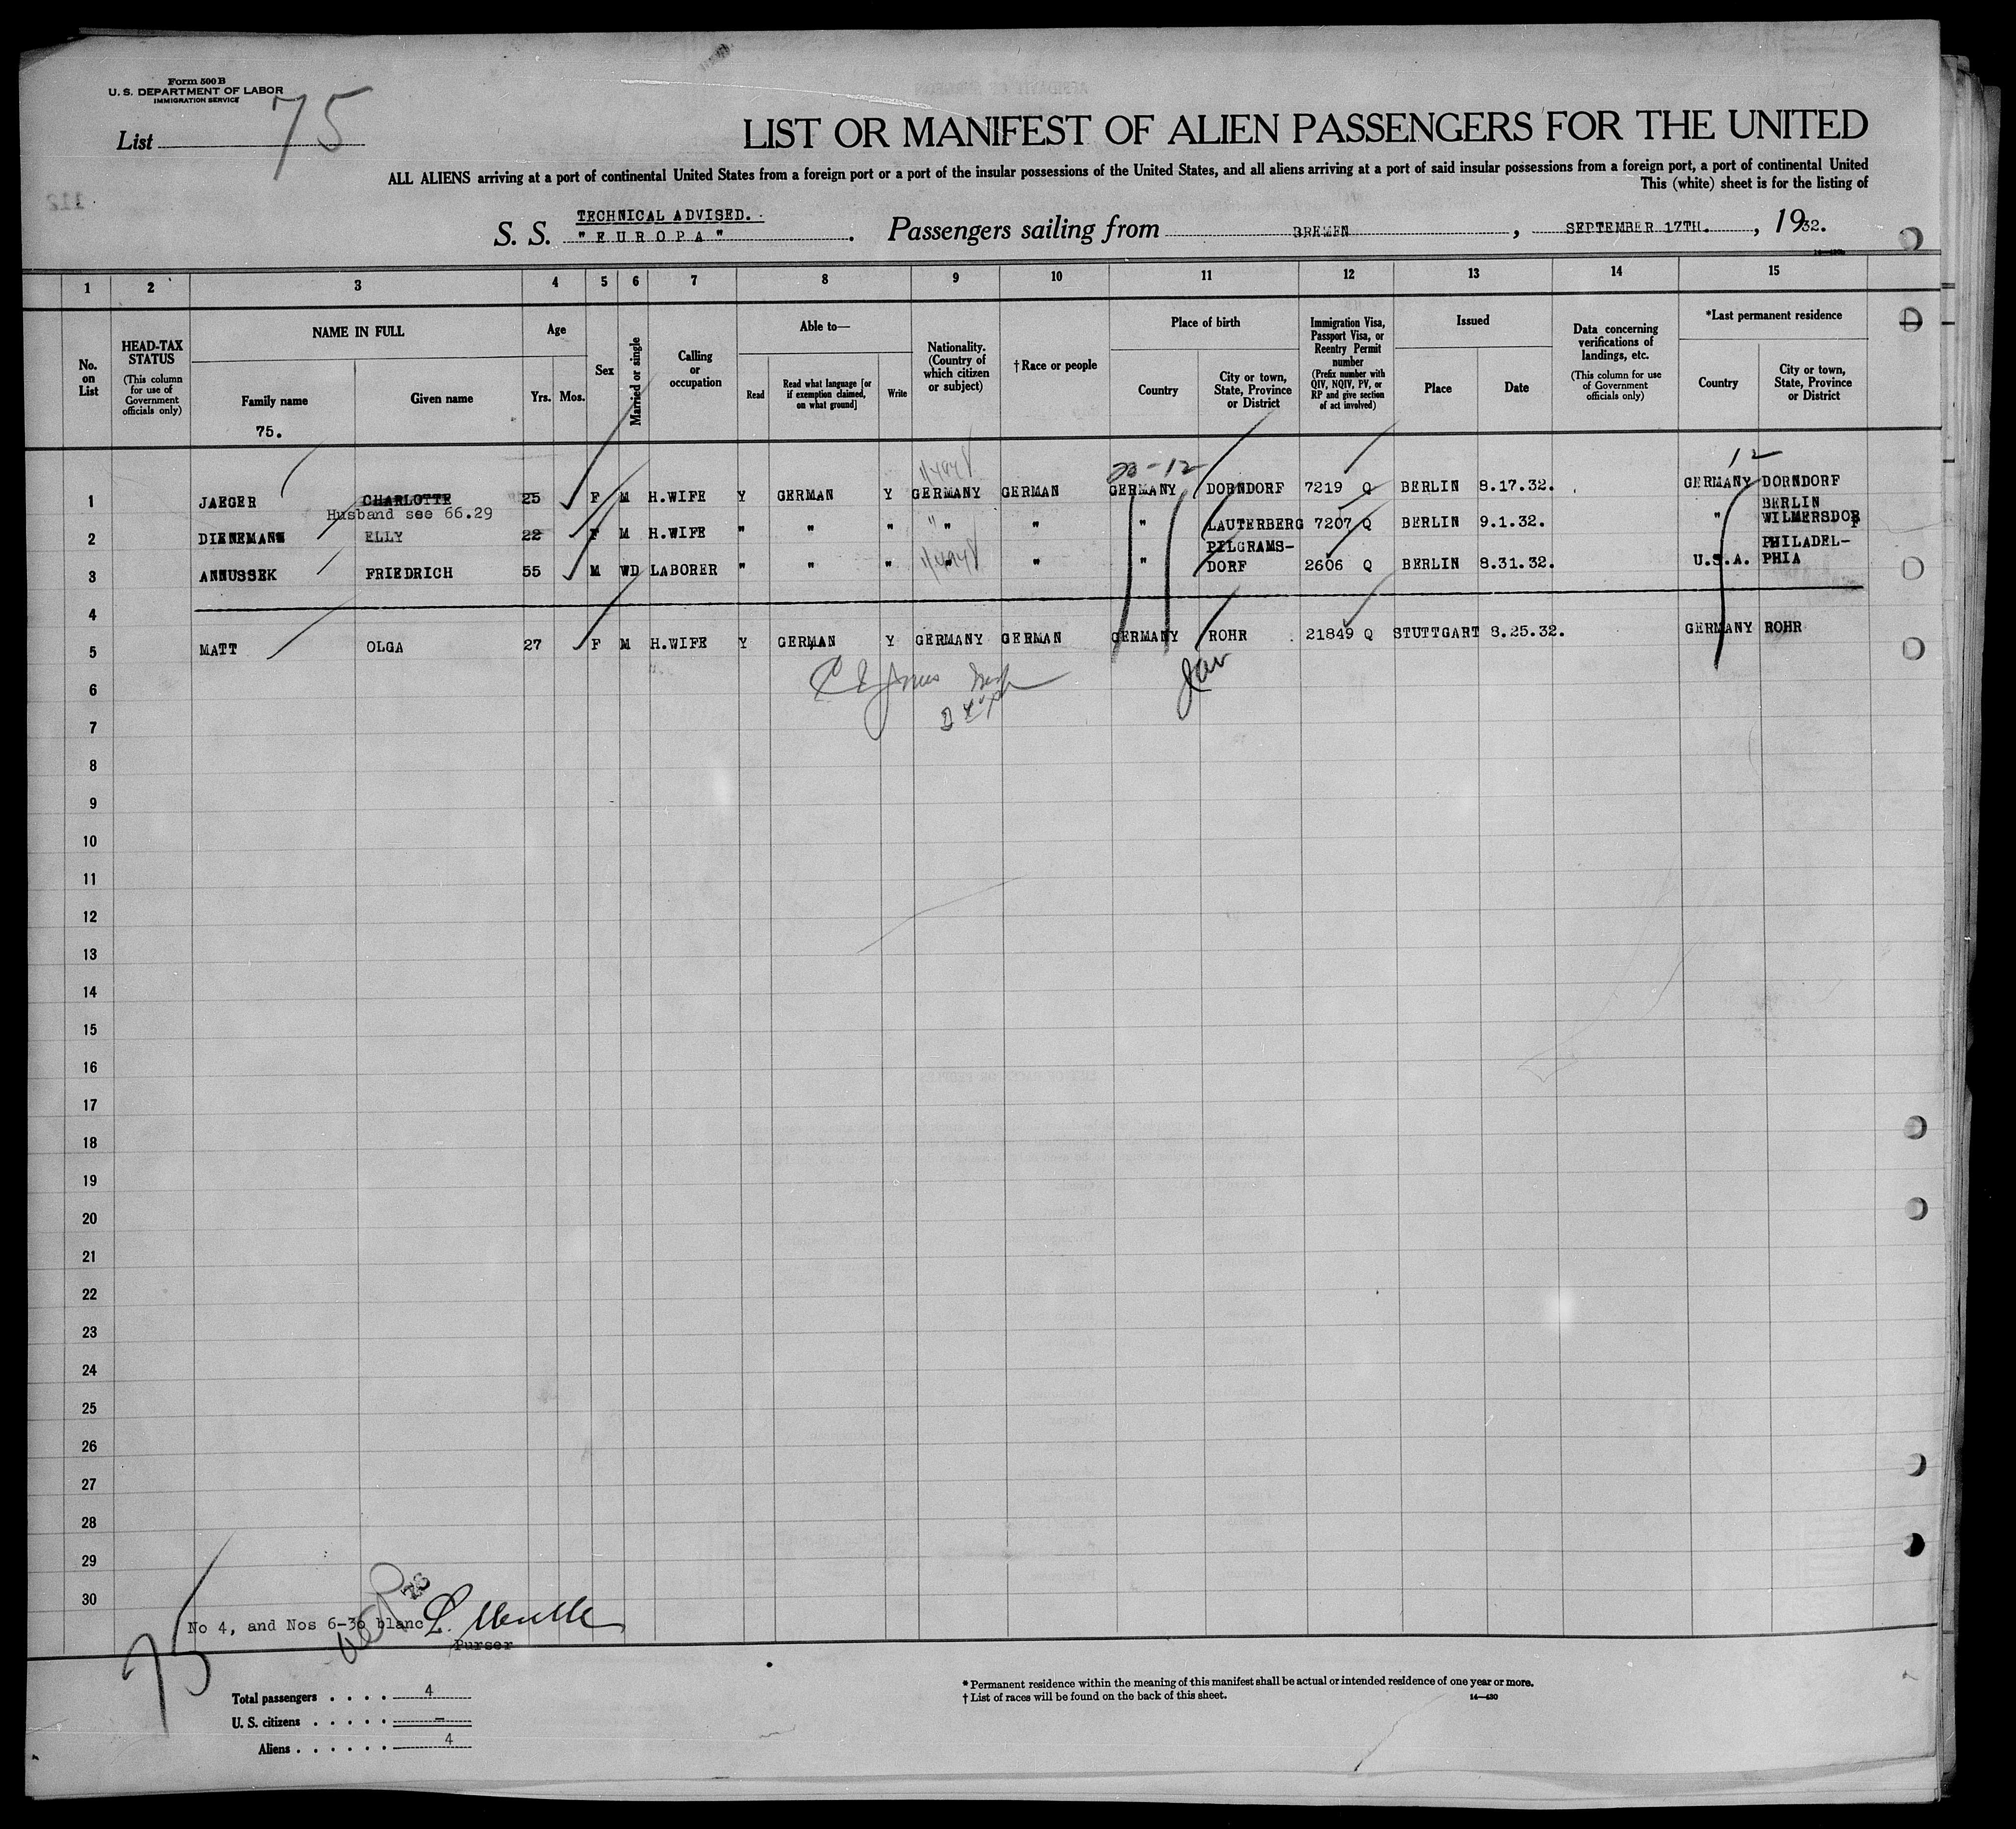 Form 500 B
U. S. DEPARTMENT OF LABOR
IMMIGRATION SERVICE
List 75
LIST OR MANIFEST OF ALIEN PASSENGERS FOR THE UNITED
ALL ALIENS arriving at a port of continental United States from a foreign port or a port of the insular possessions of the United States, and all aliens arriving at a port of said insular possessions from a foreign port, a port of continental United
This (white) sheet is for the listing of
TECHNICAL ADVISED.
S. S. "EUROPA". Passengers sailing from BREMEN, SEPTEMBER 17TH., 1932.
1 2 3 4 5 6 7 8 9 10 11 12 13 14 15
No. on List
HEAD-TAX STATUS
(This column for use of Government officials only)
NAME IN FULL
Family name
75.
Given name
Age
Yrs. Mos.
Sex
Married or single
Calling or occupation
Able to—
Read
Read what language [or if exemption claimed, on what ground]
Write
Nationality. (Country of which citizen or subject)
† Race or people
Place of birth
Country
City or town, State, Province or District
Immigration Visa, Passport Visa, or Reentry Permit number
(Prefix number with QIV, NQIV, PV, or RP and give section of act involved)
Issued
Place
Date
Data concerning verifications of landings, etc.
(This column for use of Government officials only)
*Last permanent residence
Country
City or town, State, Province or District
20-12 12
1 JAEGER CHARLOTTE 25 F M H.WIFE Y GERMAN Y GERMANY GERMAN GERMANY DORNDORF 7219 Q BERLIN 8.17.32. GERMANY DORNDORF
Husband see 66.29
2 DIENEMANN ELLY 22 F M H.WIFE " " " " " " LAUTERBERG 7207 Q BERLIN 9.1.32. " BERLIN WILMERSDORF
3 ANNUSSEK FRIEDRICH 55 M WD LABORER " " " " " " PILGRAMS-DORF 2606 Q BERLIN 8.31.32. U.S.A. PHILADEL-PHIA
4
5 MATT OLGA 27 F M H.WIFE Y GERMAN Y GERMANY GERMAN GERMANY ROHR 21849 Q STUTTGART 8.25.32. GERMANY ROHR
6
7
8
9
10
11
12
13
14
15
16
17
18
19
20
21
22
23
24
25
26
27
28
29
30
No 4, and Nos 6-30 blanc
Purser
75
Total passengers . . . . 4
U. S. citizens . . . . . –
Aliens . . . . . . 4
* Permanent residence within the meaning of this manifest shall be actual or intended residence of one year or more.
† List of races will be found on the back of this sheet.
14—430